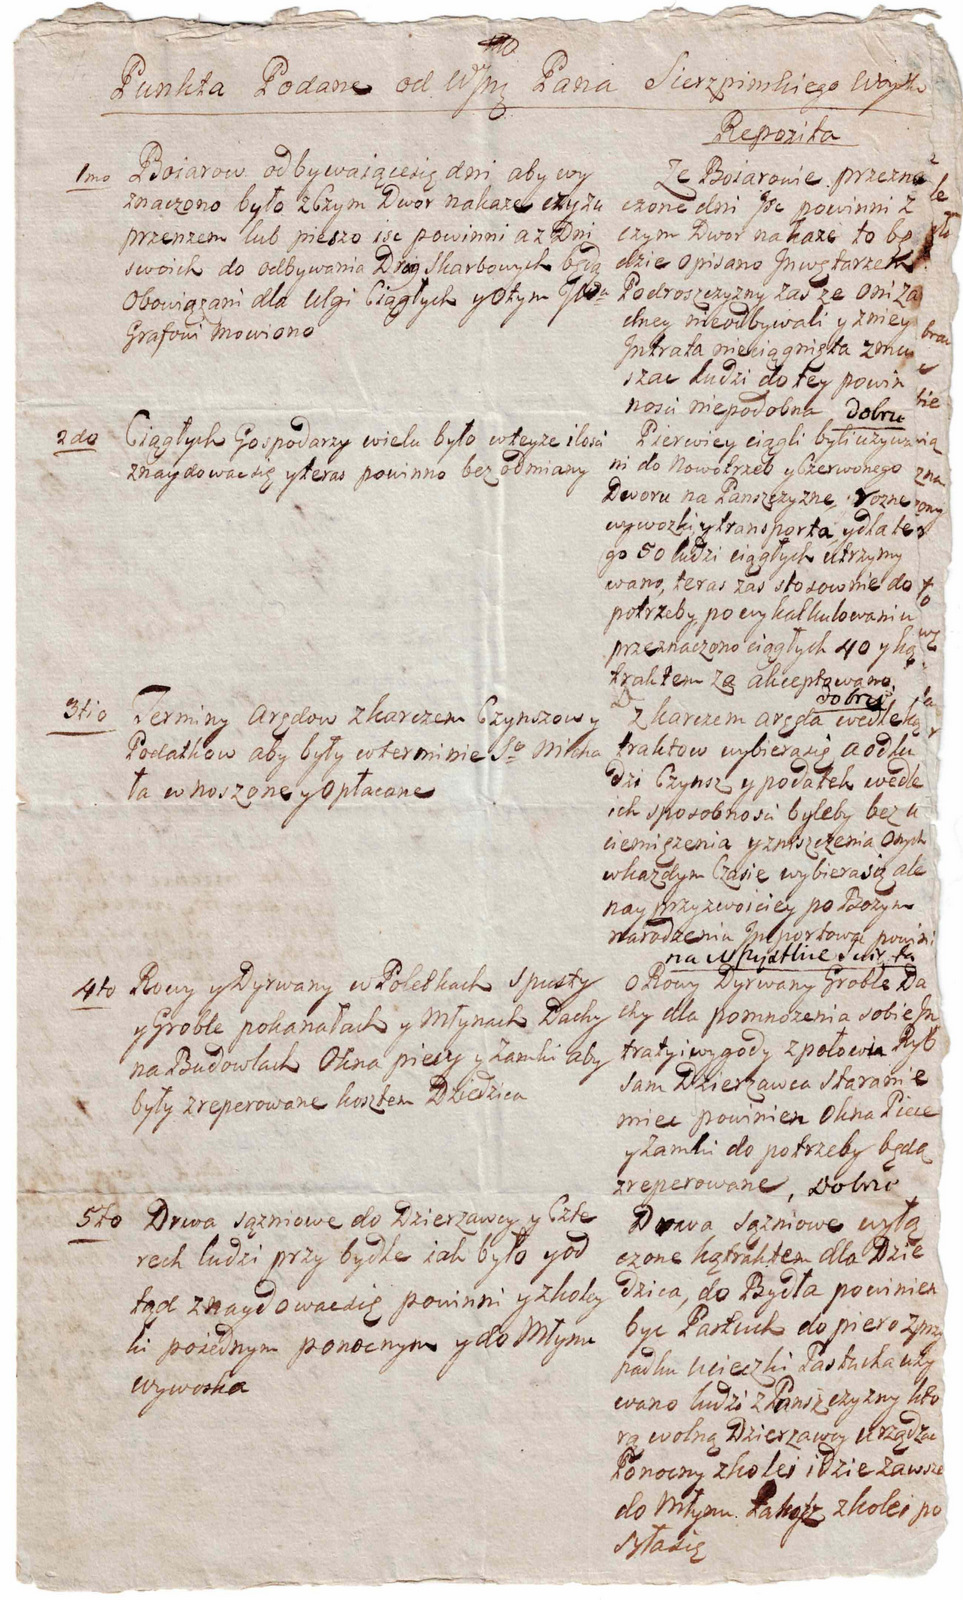 Punkta Podane od WJm Pana Sierzpinskiego
Repozita
1mo Boiarow odbywaiąciesię dni aby wy
znaczono było zczym Dwor nakaze czy zu
przenzem lub pieszo isc powinni a z Dni
swoich do odbywania Drog Skarbowych będą
Obowiązani dla Ulgi Ciągłych y otym
Grafowi Mowiono
Ze Boiarowie przezna
czone dni isc powinni z
czym Dwor nakaze to bę
dzie opisano Inwętarzem
Podroszczyzny zas ze oni za
dney nieodbywali y zniey
Intrata nieciągnięta zmu
szac ludzi do tey powin
nosci niepodobna dobru
2do Ciągłych Gospodarzy wielu było wteyze ilosci
znaydowacsię y teras powinno bez odmiany
Pierwiey ciągli byli uzywa
ni do Nowotrzeb y Czerwonego
Dworu na Panszczyznę, rozne
wywozki y transporta, y dla te
go 50 ludzi ciągłych utrzymy
wano, teras zas stosownie do
potrzeby, po wykalkulowaniu
przeznaczono ciągłych 40 y ką
traktem za akceptowano,
dobru
3tio Terminy Arędow zkarczem Czynszow y
Podatkow aby były wterminie So Micha
ła wnoszone y opłacane
Z karczem aręda wedle ką
traktow wybierasię a od lu
dzi Czynsz y podatek wedle
ich sposobnosci byleby bez u
ciemięzenia y zniszczenia Onych
wkazdym Czasie wybierasię ale
nayprzyzwoiciey po Bozym
narodzeniu Inportowac powini
na
4to Rowy y Dyrwany w Poletkach spusty
y Groble pokanałach y Młynach Dachy
na Budowlach Okna piecy y Zamki aby
były zreperowane kosztem Dziedzica
O Rowy Dyrwany Groble Da
chy dla pomnozenia sobie In
traty i wygody z połowia Ryb
sam Dzierzawca staranie
miec powinien Okna Piece
y Zamki do potrzeby będą
zreperowane, Dobru
5to Drwa sązniowe do Dzierzawcy y Czte
rech ludzi przy bydle iak było y od
tąd znaydowacsię powinni y zkoley
ki poiednym ponocnym y do Młynu
wywoska
Drwa sązniowe wyłą
czone kątraktem dla Dzie
dzica, do Bydła powinien
byc Pastuch dopiero z przy
padku ucieczki Pastucha uzy
wano ludzi z Panszczyzny kto
rą wolną Dzierzawcy urządzac
Ponocny zkolei idzie zawsze
do Młynu takoz zkolei po
syłasię